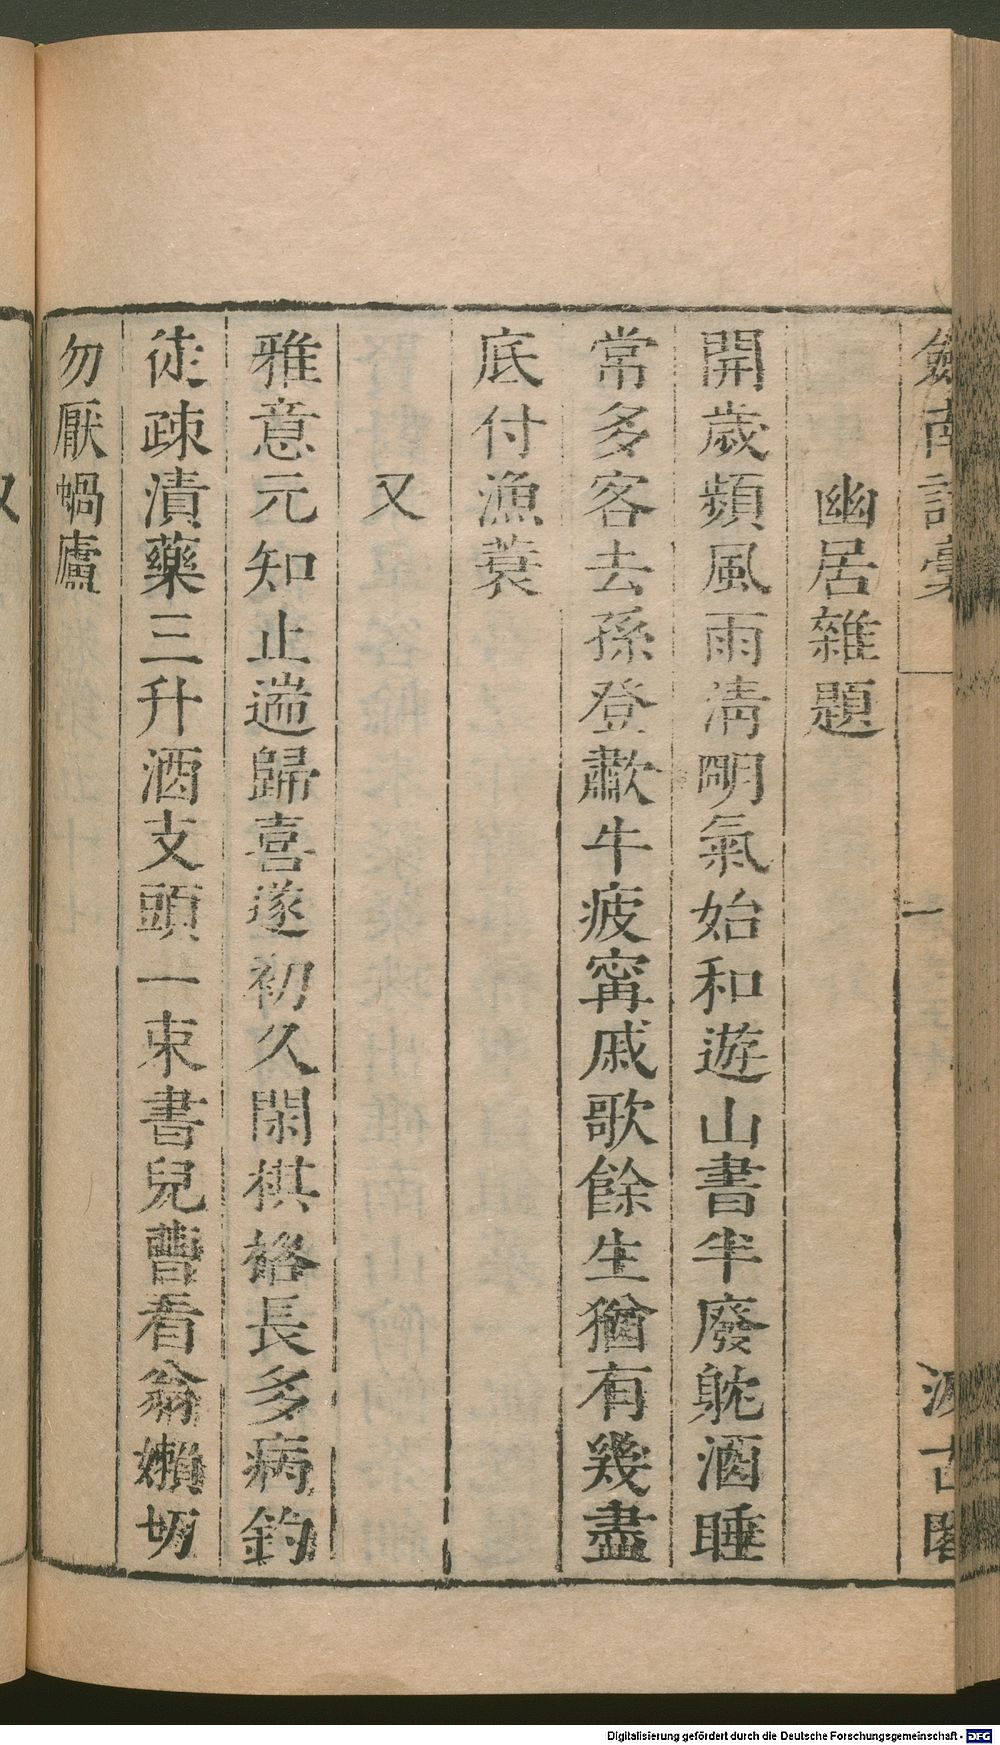 劒南詩稾
一
汲古閣
幽居雜題
開歲頻風雨清明氣始和遊山書半廢躭酒睡
常多客去孫登歗牛疲甯戚歌餘生猶有幾盡
底付漁蓑
又
雅意元知止遄歸喜遂初久閑棋格長多病釣
徒疎漬藥三升酒支頭一束書兒曹看翁嬾切
勿厭蝸廬
又
Digitalisierung gefördert durch die Deutsche Forschungsgemeinschaft - DFG